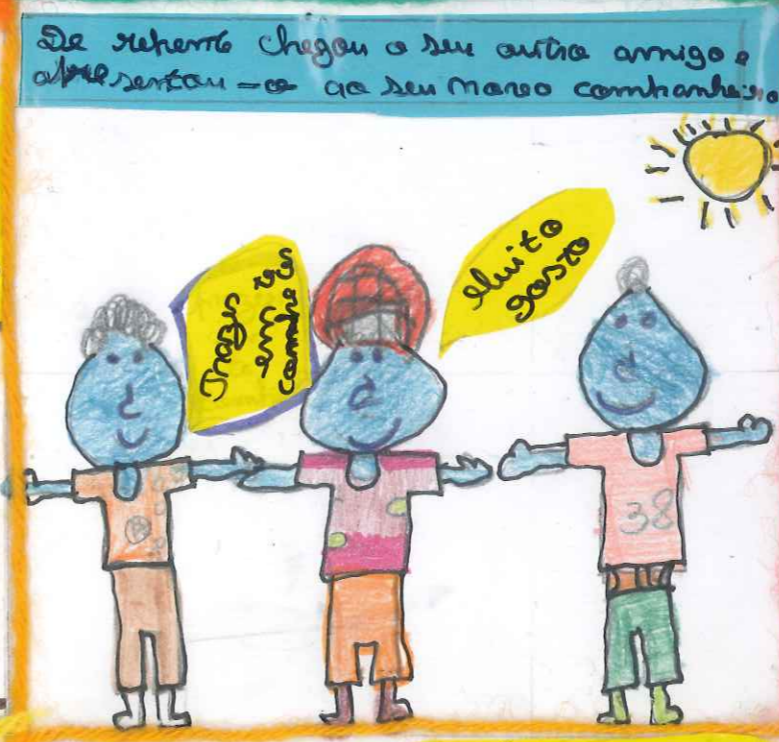 De repente chegou o seu outro amigo e
apresentou-o ao seu novo companheiro
Prazer
em
Muito
gosto
38